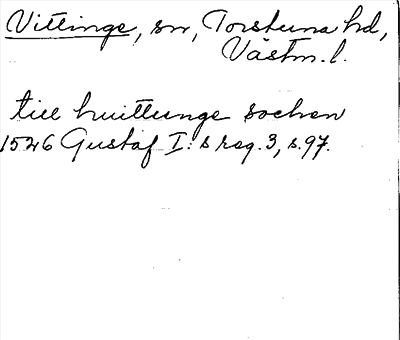 Vittinge, sn, Torstuna hd,
Västm. l.
till huittunge sochen
1526 Gustaf I:s reg. 3, s. 97.